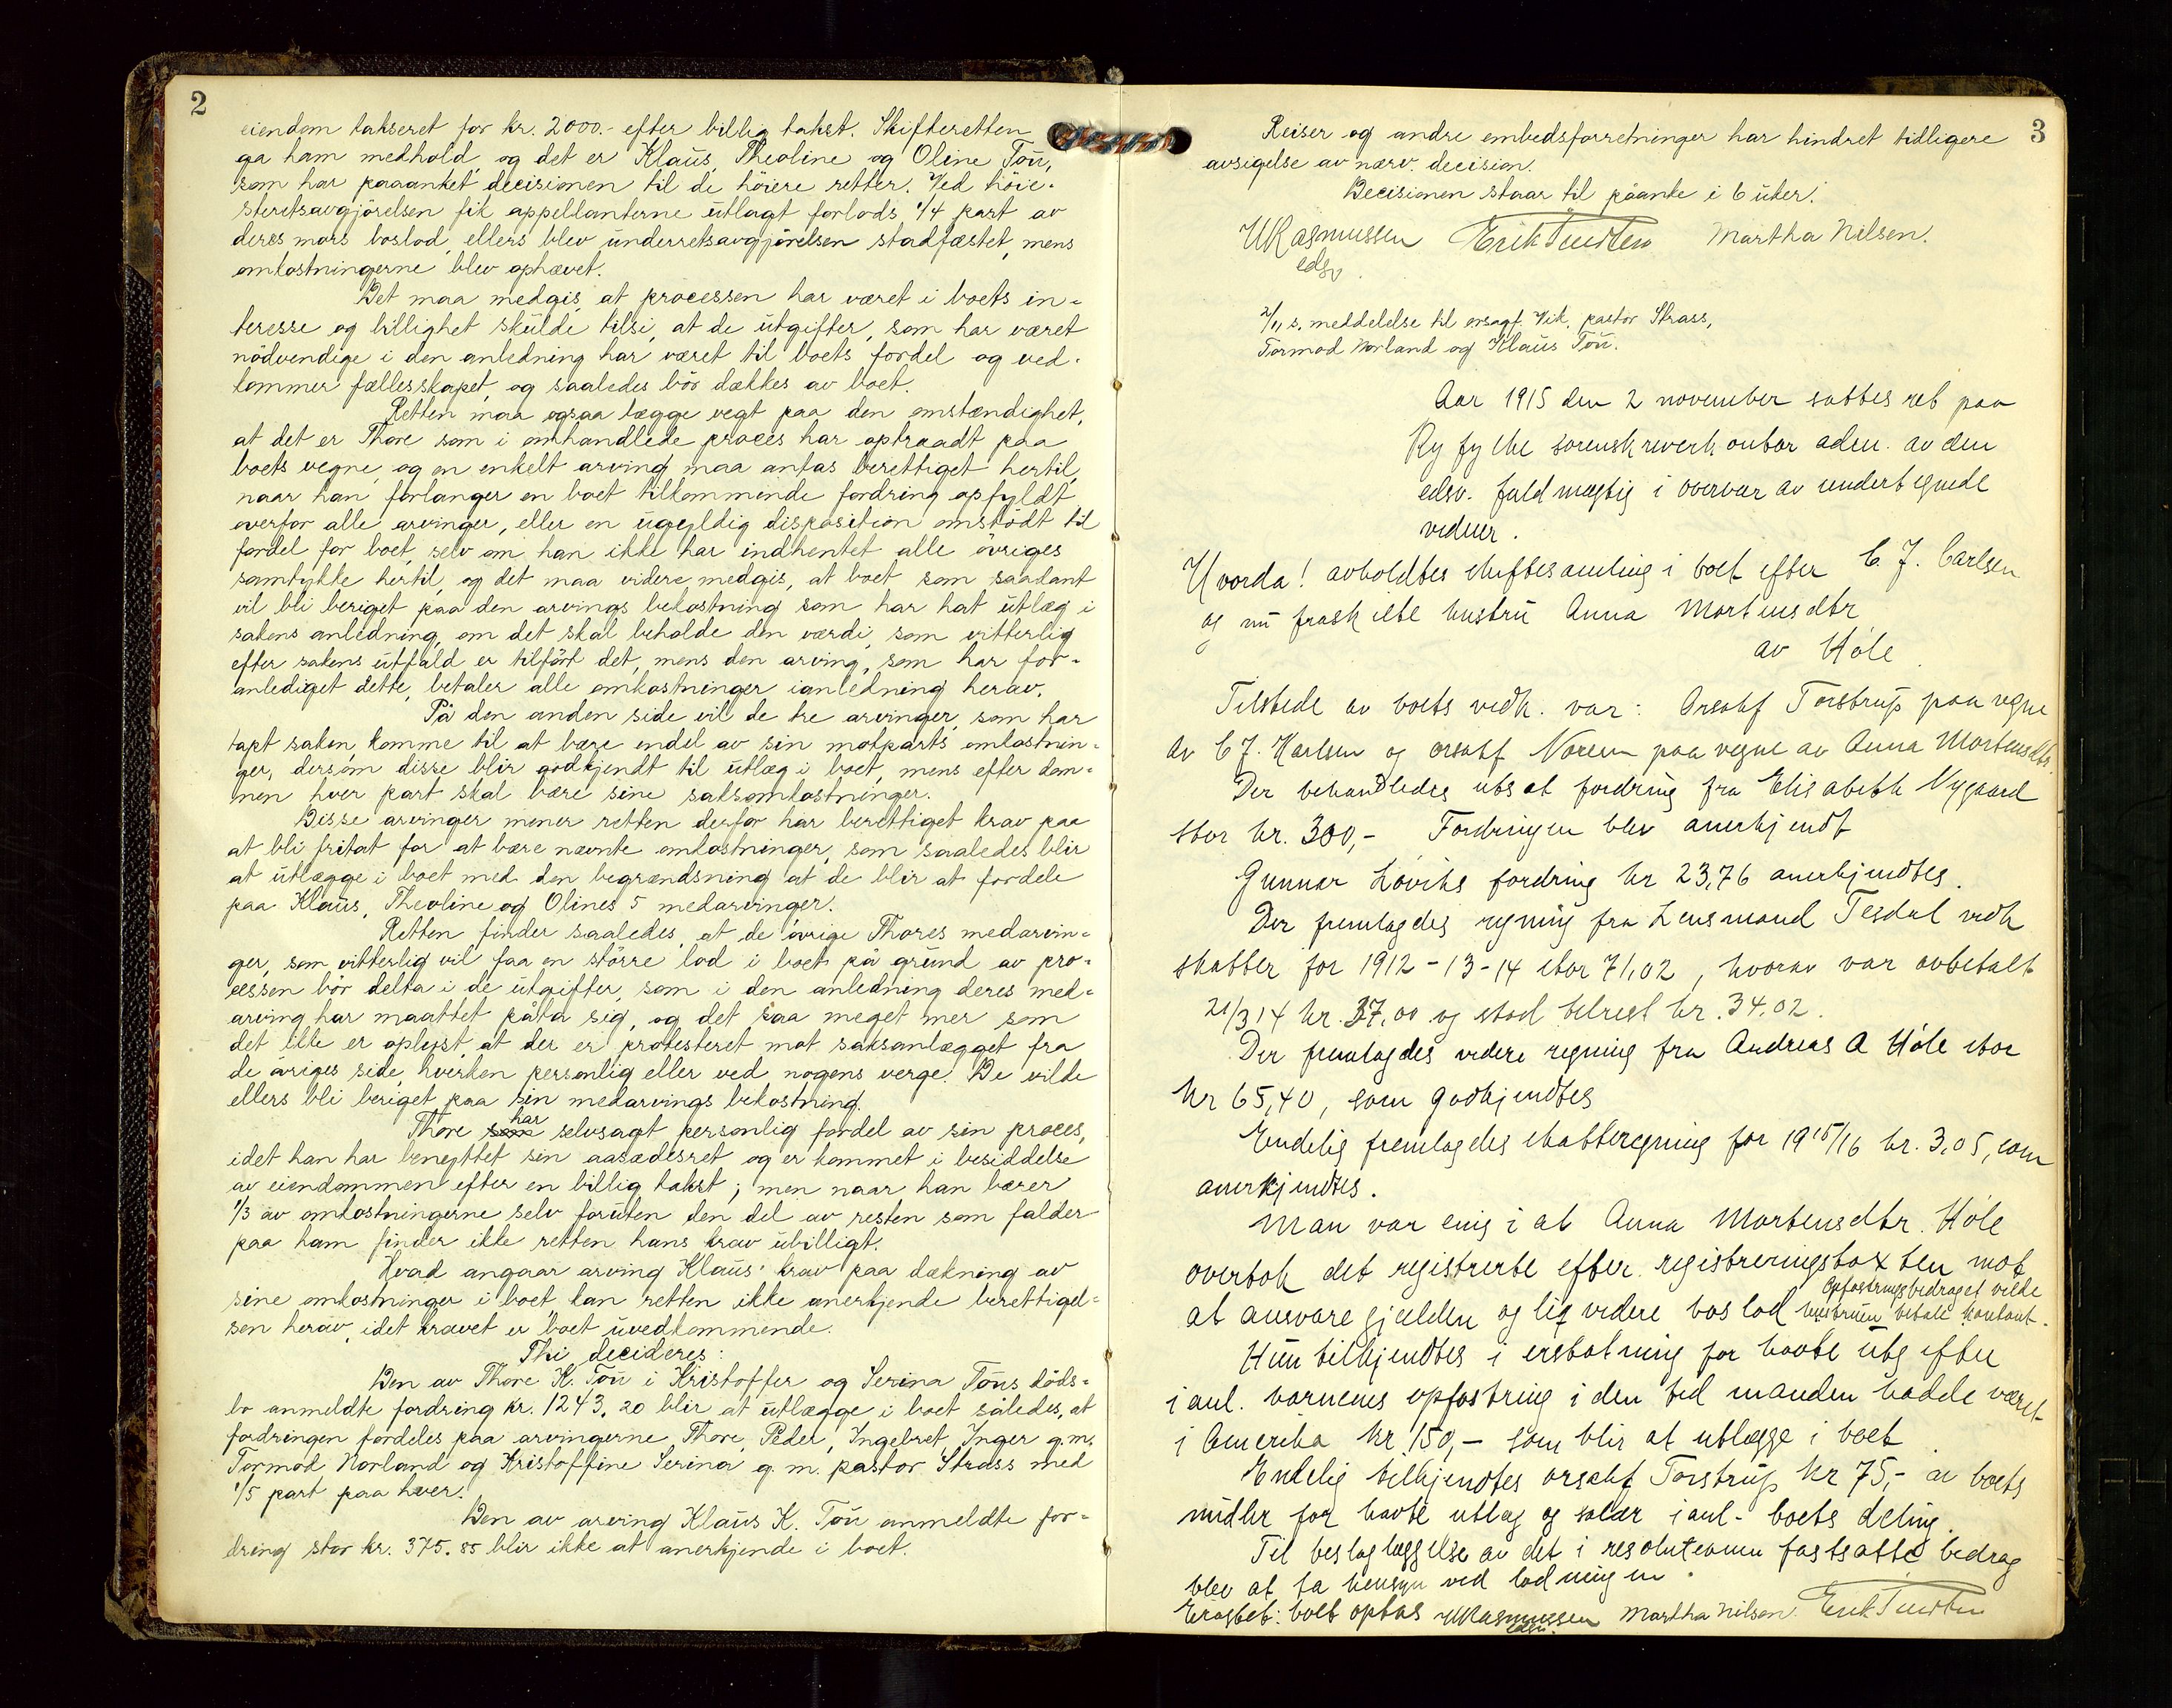 2
eiendom takseret for kr. 2000.- efter billig takst. Skifteretten
ga ham medhold, og det er Klaus, Theoline og Oline Tou,
som har paaanket decisionen til de höiere retter. Ved höie-
steretsavgjörelsen fik appellanterne utlagt forlods 1/4 part av
deres mors boslod, ellers blev underretsavgjörelsen stadfæstet, mens
omkostningerne blev ophævet.
Det maa medgis, at processen har været i boets in-
teresse og billighet skulde tilsi, at de utgifter, som har været
nödvendige i den anledning har været til boets fordel og ved-
kommer fællesskapet, og saaledes bör dækkes av boet.
Retten maa ogsaa lægge vegt paa den omstændighet,
at det er Thore som i omhandlede proces har optraadt paa
boets vegne, og en enkelt arving maa antas berettiget hertil,
naar han forlanger en boet tilkommende fordring opfyldt
overfor alle arvinger, eller en ugyldig disposition omstödt til
fordel for boet, selv om han ikke har indhentet alle övriges
samtykke hertil, og det maa videre medgis, at boet som saadant
vil bli beriget paa den arvings bekostning som har hat utlæg i
sakens anledning, om det skal beholde den værdi, som vitterlig
efter sakens utfald er tilfört det, mens den arving, som har for-
anlediget dette, betaler alle omkostninger ianledning herav.
På den anden side vil de tre arvinger, som har
tapt saken, komme til at bære endel av sin motparts omkostnin-
ger, dersom disse blir godkjendt til utlæg i boet, mens efter dom-
men hver part skal bære sine saksomkostninger.
Disse arvinger mener retten derfor har berettiget krav paa
at bli fritat for at bære nævnte omkostninger, som saaledes blir
at utlægge i boet med den begrændsning at de blir at fordele
paa Klaus, Theoline og Olines 5 medarvinger.
Retten finder saaledes, at de övrige Thores medarvin-
ger, som vitterlig vil faa en större lod i boet på grund av pro-
cessen bör delta i de utgifter, som i den anledning deres med-
arving har maattet påta sig, og det saa meget mer som
det ikke er oplyst, at der er protesteret mot saksanlægget fra
de övriges side, hverken personlig eller ved nogens verge. De vilde
ellers bli beriget paa sin medarvings bekostning.
Thore som har selvsagt personlig fordel av sin proces,
idet han har benyttet sin aasædesret og er kommet i besiddelse
av eiendommen efter en billig takst; men naar han bærer
1/3 av omkostningerne selv foruten den del av resten som falder
paa ham finder ikke retten hans krav ubilligt.
Hvad angaar arving Klaus' krav paa dækning av
sine omkostninger i boet kan retten ikke anerkjende berettigel-
sen herav, idet kravet er boet uvedkommende.
Thi decideres:
Den av Thore K. Tou i Kristoffer og Serina Tous döds-
bo anmeldte fordring kr. 1243.20 blir at utlægge i boet således, at
fordringen fordeles paa arvingerne Thore, Peder, Ingebret, Inger g.m.
Tormod Norland og Kristoffine Serina g.m. pastor Strass med
1/5 part paa hver.
Den av arving Klaus K. Tou anmeldte for-
dring stor kr. 375.85 blir ikke at anerkjende i boet.
3
Reiser og andre embedsforretninger har hindret tidligere
avsigelse av nærv. decision.
Decisionen staar til påanke i 6 uker.
WRasmussen Erik Tindten Martha Nilsen.
edsv.
2/11 s. meddelelse til orsagf. Vik, pastor Strass,
Tormod Norland og Klaus Tou.
Aar 1915 den 2 november sattes ret paa
Ryfylke sorenskriverkontor adm. av den
edsv. fuldmægtig i overvær av undertegnede
vidner.
Hvorda! avholdtes skiftesamling i boet efter C. J. Carlsen
og nu fraskilte hustru Anna Mortensdtr
av Höle.
Tilstede av boets vedk. var: Orsakf Torstrup paa vegne
av C J. Karlsen og orsakf Noren paa vegne av Anna Mortensdtr.
Der behandledes utsat fordring fra Elisabeth Nygaard
stor kr. 300,- Fordringen blev anerkjendt
Gunnar Löviks fordring kr 23,76 anerkjendtes.
Der fremlagdes regning fra Lensmand Tesdal vedk
skatter for 1912-13-14 stor 71,02, hvorav var avbetalt
21/3 14 kr. 37.00 og stod tilrest kr. 34.02.
Der fremlagdes videre regning fra Andreas A Höle stor
kr 65,40, som godkjendtes
Endelig fremlagdes skatteregning for 1915/16 kr. 3,05, som
anerkjendtes.
Man var enig i at Anna Mortensdtr. Höle
overtok det registrerte efter registreringstaxten mot
at ansvare gjælden og lik videre boslod Opfostringsbidraget vilde
hustruen betale kontant.
Hun tilkjendtes i erstatning for havte utgifter
i anl. barnenes opfostring i den tid manden hadde været
i Amerika kr 150,- som blir at utlægge i boet.
Endelig tilkjendtes orsakf Torstrup kr 75,- av boets
midler for havte utlæg og salær i anl. boets deling.
Til beslaglæggelse av det i resolutionen fastsatte bidrag
blev at ta hensyn ved lodningen.
boet optas WRasmussen Martha Nilsen. Erik Tindten
edsv.